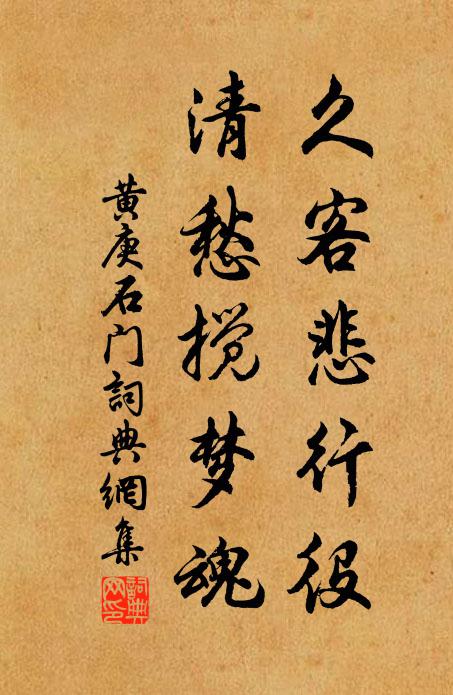 久客悲行役
清愁搅梦魂
黄庚石门詞典網集
詞典网印